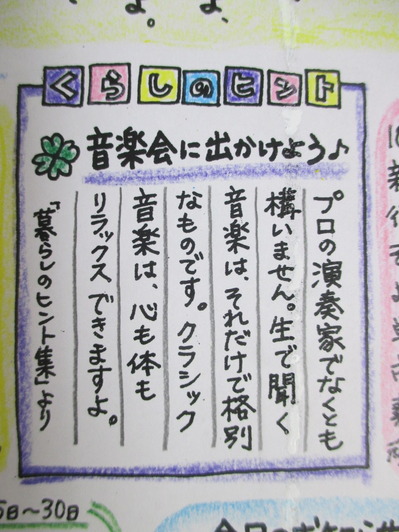 くらしのヒント
音楽会に出かけよう♪
プロの演奏家でなくとも
構いません。生で聞く
音楽は、それだけで格別
なものです。クラシック
音楽は、心も体も
リラックスできますよ。
「暮らしのヒント集」より
5日～30日